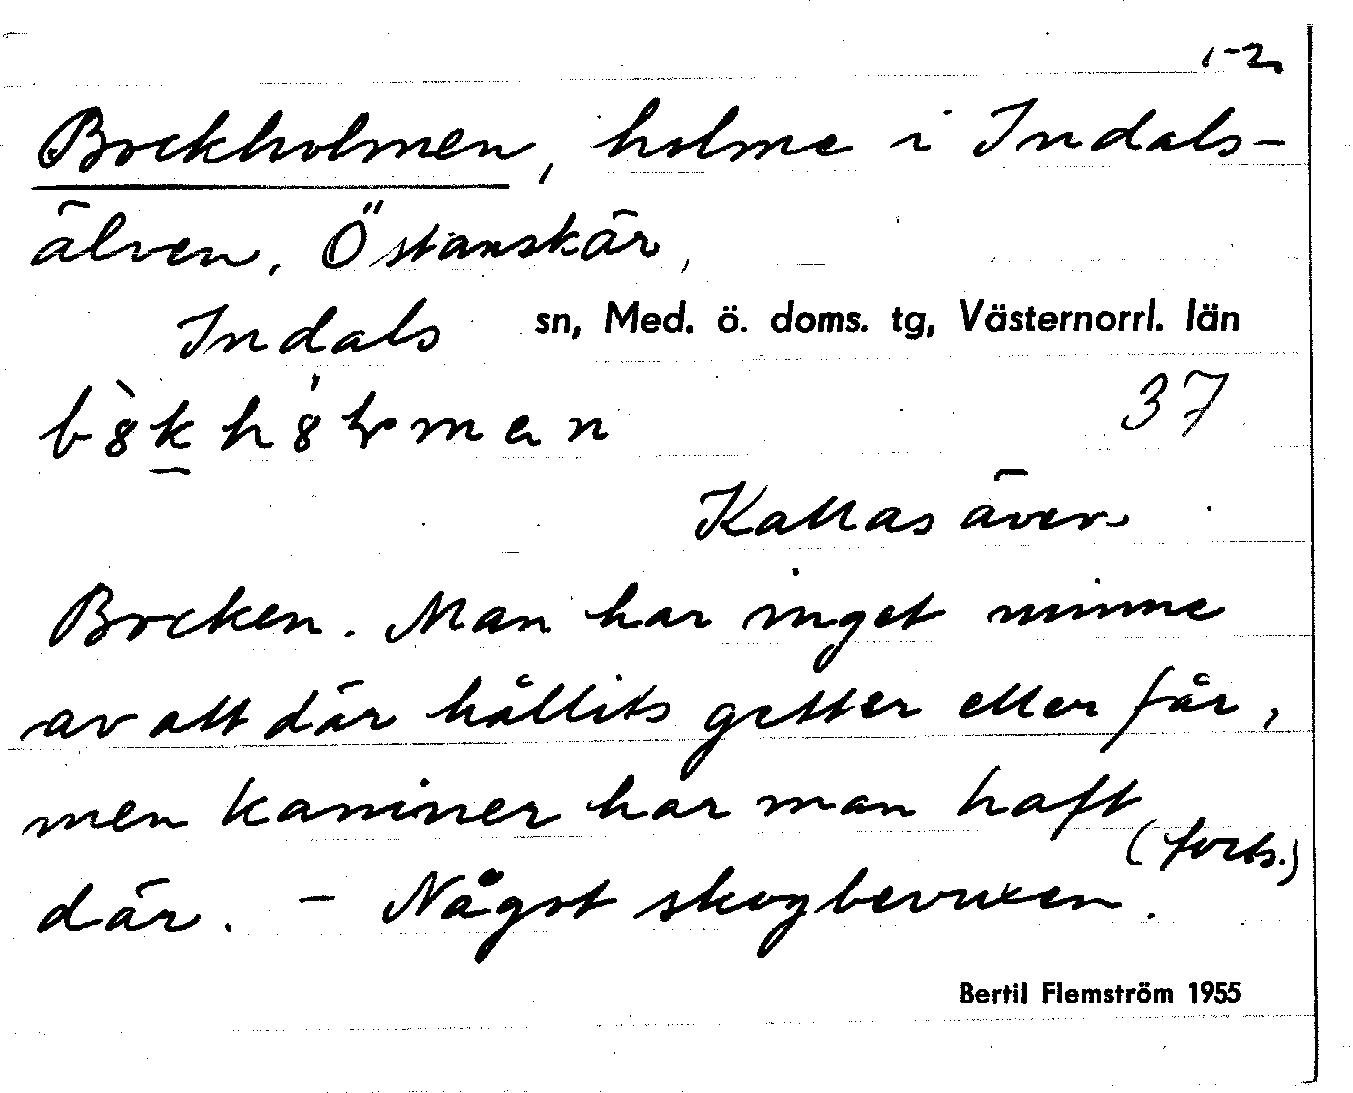 1-2
Bockholmen, holme i Indals-
älven, Östanskär,
Indals sn, Med. ö. doms. tg, Västernorrl. län
37
Kallas även
Bocken. Man har inget minne
av att där hållits getter eller får,
men kaniner har man haft
där. - Något skogbevuxen. (forts.)
Bertil Flemström 1955